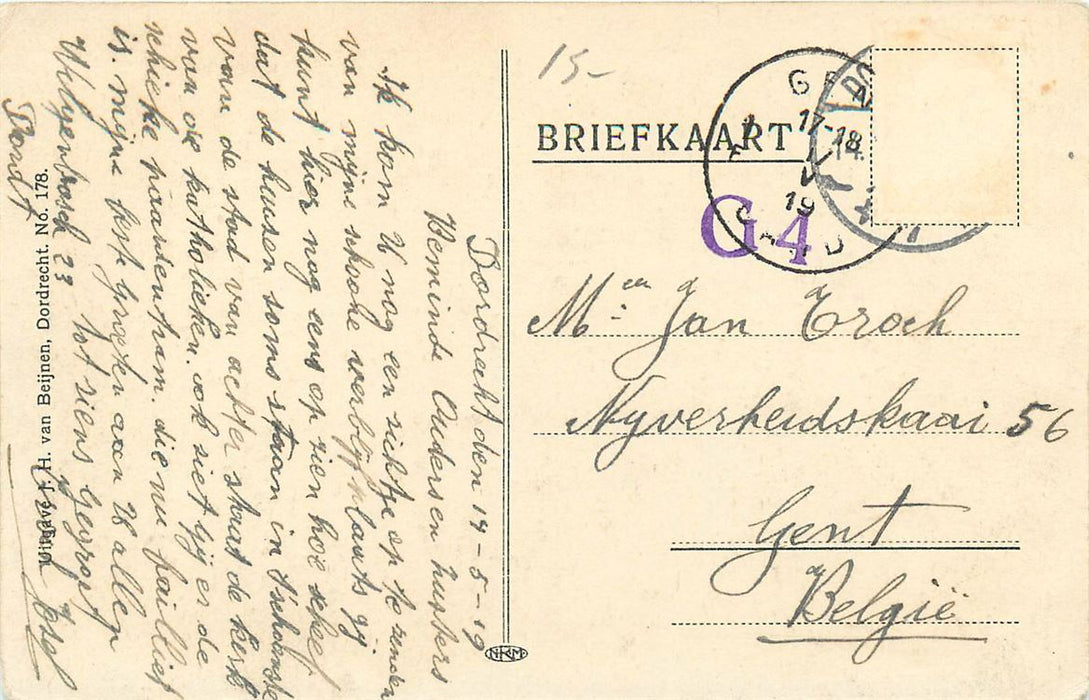 Dordrecht den 14-5-19
Beminde Ouders en husters
Ik kom U nog een zichtje op te zenden
van mijne schone verblijfplaats gij
kunt hier nog eens op zien hoe scheef
dat de huusen soms staan in
van de stad van achter staat de kerk
van de katholieken. ook ziet gij er de
paardentram. die nu failliet
is. mijne beste groeten aan U allen
tot siens Gevrost
Wilgenbosch 23
Dordt
Uitgave J. H. van Beijnen, Dordrecht. No. 178.
NRM
15-
BRIEFKAART
GENT
17-18
V
19
GAND
DO
14.
G4
Mr Jan Eroch
Nyverheidskaai 56
Gent
België